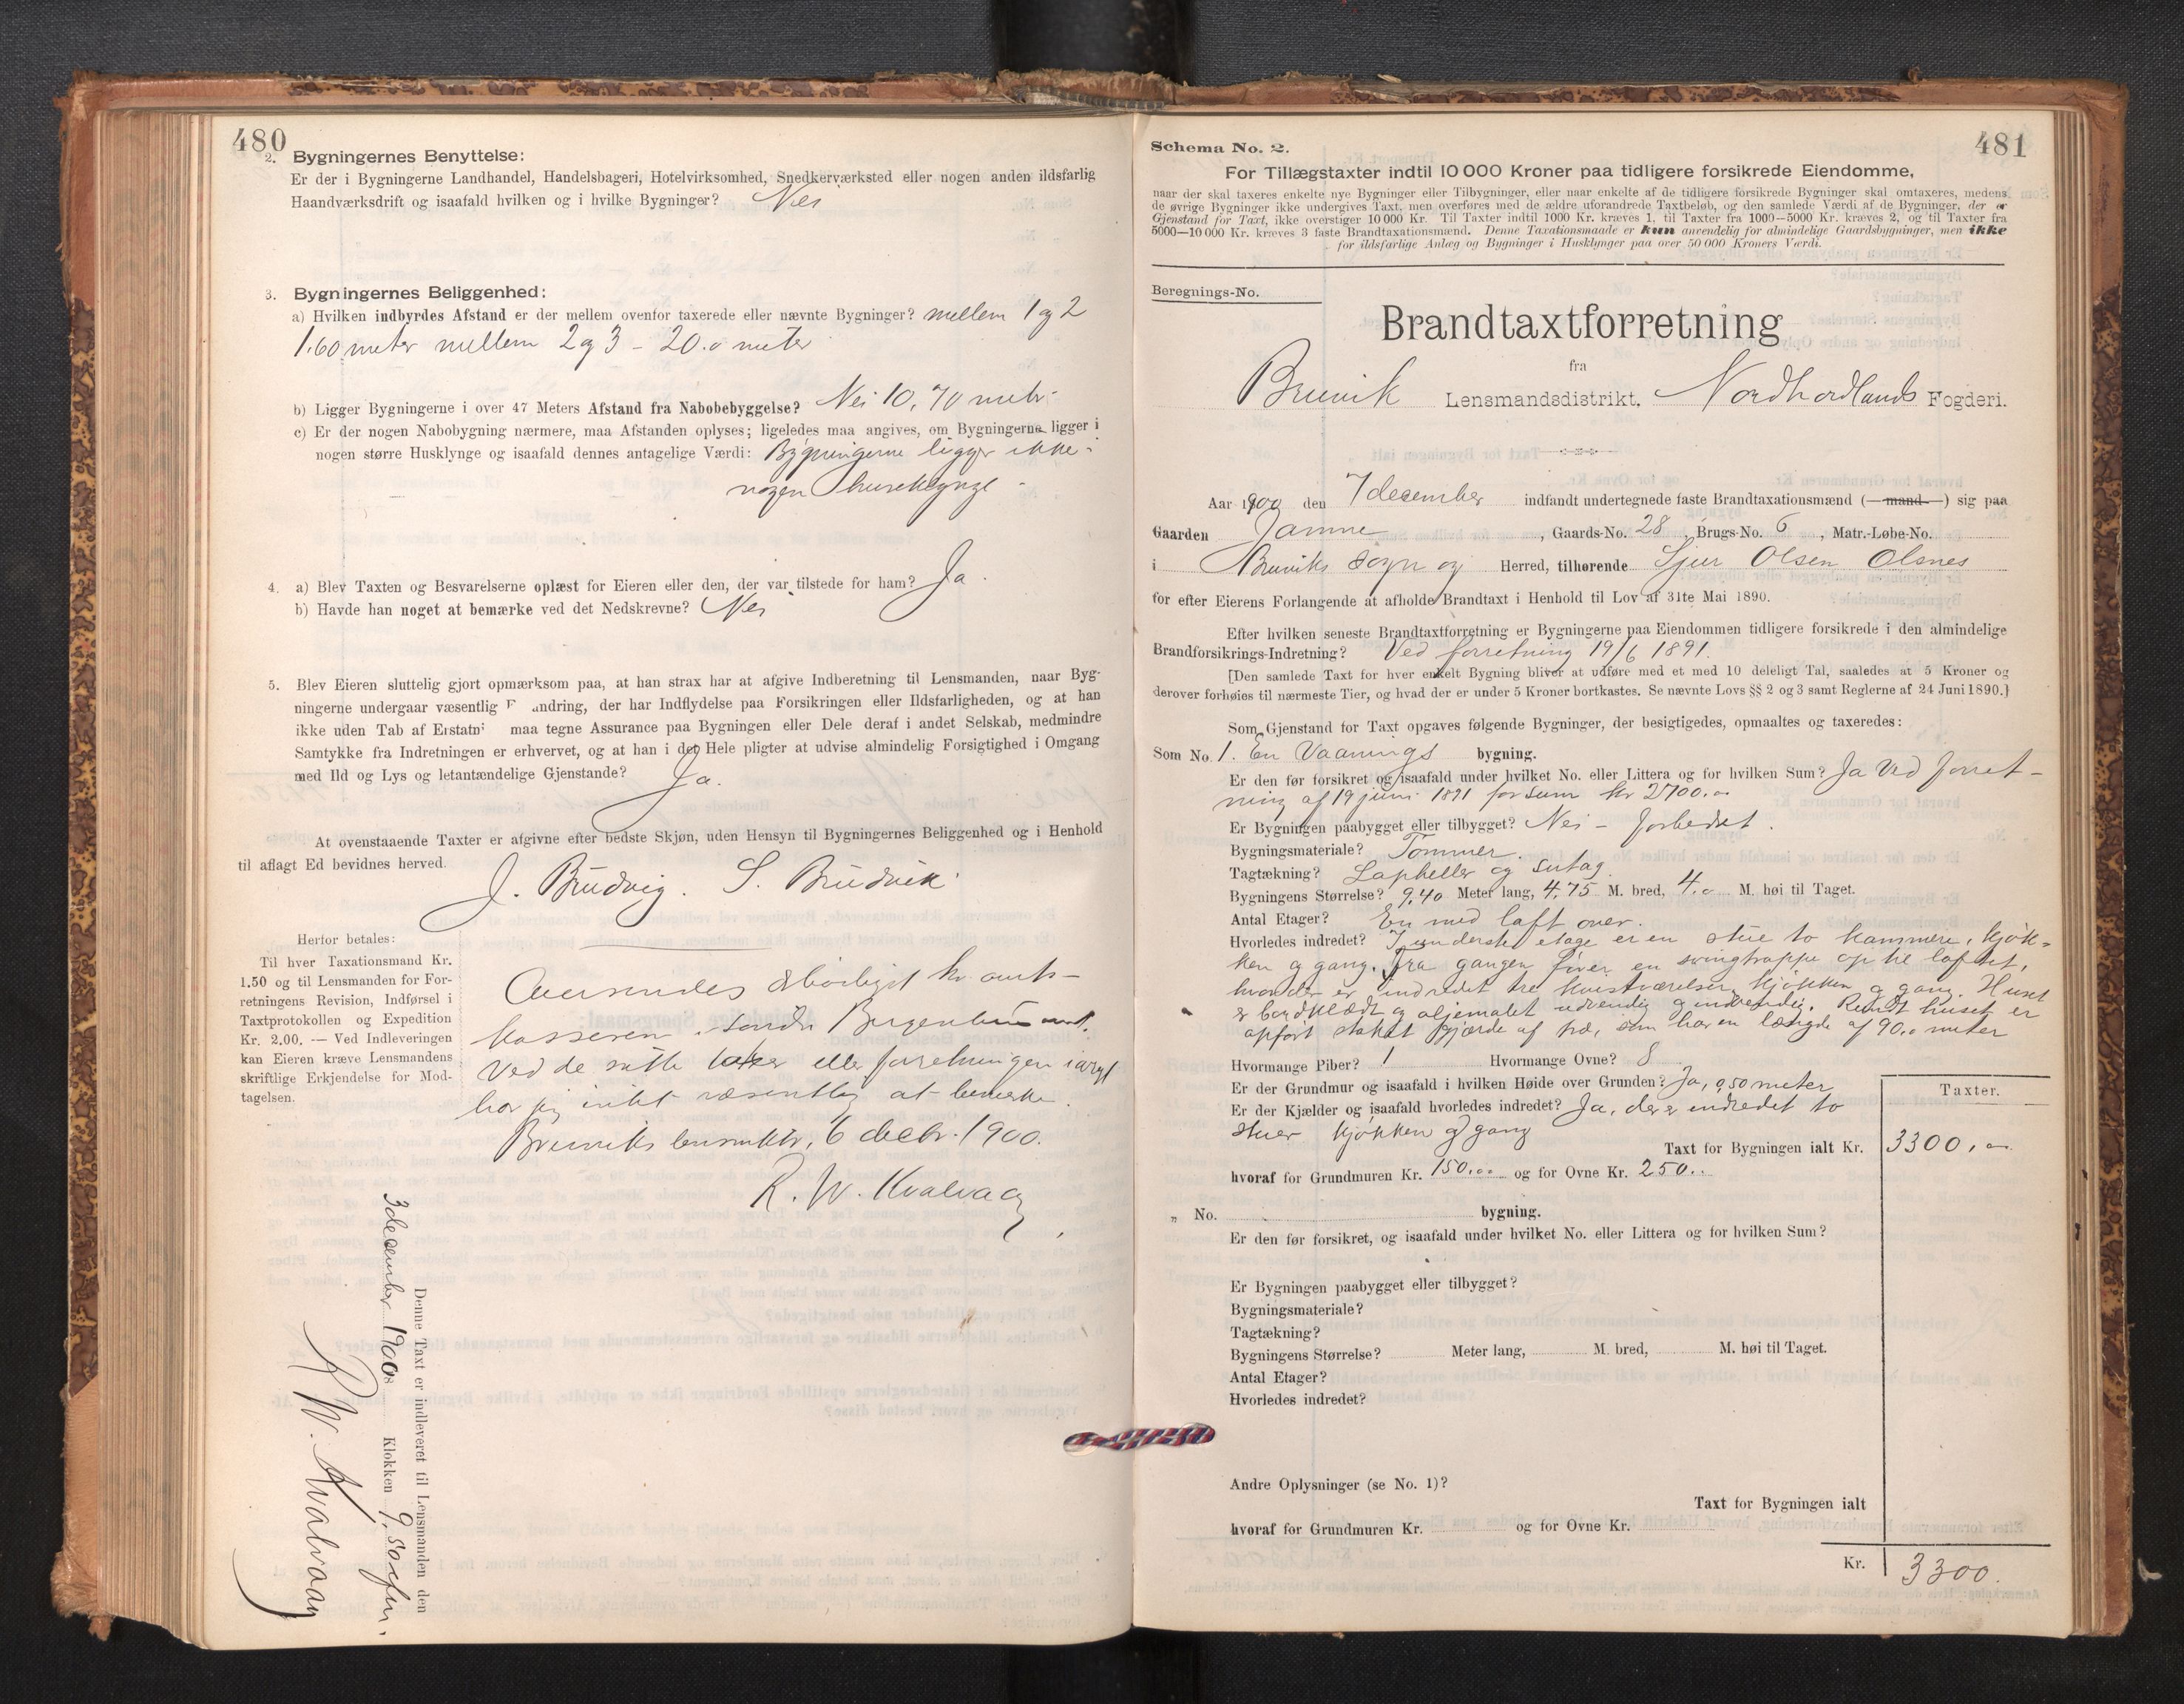 480
2. Bygningernes Benyttelse:
Er der i Bygningerne Landhandel, Handelsbageri, Hotelvirksomhed, Snedkerværksted eller nogen anden ildsfarlig
Haandværksdrift og isaafald hvilken og i hvilke Bygninger? Nei
3. Bygningernes Beliggenhed:
a) Hvilken indbyrdes Afstand er der mellem ovenfor taxerede eller nævnte Bygninger? mellem 1 og 2
1.60 meter mellem 2 og 3 - 20.0 meter
b) Ligger Bygningerne i over 47 Meters Afstand fra Nabobebyggelse? Nei 10,70 metr.
c) Er der nogen Nabobygning nærmere, maa Afstanden oplyses; ligeledes maa angives, om Bygningerne ligger i
nogen større Husklynge og isaafald dennes antagelige Værdi: Bygningerne ligger ikke i
nogen husklynge
4. a) Blev Taxten og Besvarelserne oplæst for Eieren eller den, der var tilstede for ham? Ja.
b) Havde han noget at bemærke ved det Nedskrevne? Nei
5. Blev Eieren sluttelig gjort opmærksom paa, at han strax har at afgive Indberetning til Lensmanden, naar Byg-
ningerne undergaar væsentlig F andring, der har Indflydelse paa Forsikringen eller Ildsfarligheden, og at han
ikke uden Tab af Erstatn maa tegne Assurance paa Bygningen eller Dele deraf i andet Selskab, medmindre
Samtykke fra Indretningen er erhvervet, og at han i det Hele pligter at udvise almindelig Forsigtighed i Omgang
med Ild og Lys og letantændelige Gjenstande? Ja.
At ovenstaaende Taxter er afgivne efter bedste Skjøn, uden Hensyn til Bygningernes Beliggenhed og i Henhold
til aflagt Ed bevidnes herved.
J. Brudvig. S. Brudvik
Herfor betales:
Til hver Taxationsmand Kr.
1.50 og til Lensmanden for For-
retningens Revision, Indførsel i
Taxtprotokollen og Expedition
Kr. 2.00. — Ved Indleveringen
kan Eieren kræve Lensmandens
skriftlige Erkjendelse for Mod-
tagelsen.
Oversendes ærbødigst hr. amt-
kasseren i søndre Bergenhus amt.
Ved de satte takster eller forretningen iøvrigt
har jeg intet væsentlig at bemerke.
Bruviks lensmktr, 6 decbr. 1900.
R. W. Kvalvaag
Denne Taxt er indleveret til Lensmanden den
3 december 1900 Klokken 9,50 efm.
R. W. Kvalvaag
481
Schema No. 2.
For Tillægstaxter indtil 10 000 Kroner paa tidligere forsikrede Eiendomme,
naar der skal taxeres enkelte nye Bygninger eller Tilbygninger, eller naar enkelte af de tidligere forsikrede Bygninger skal omtaxeres, medens
de øvrige Bygninger ikke undergives Taxt, men overføres med de ældre uforandrede Taxtbeløb, og den samlede Værdi af de Bygninger, der er
Gjenstand for Taxt, ikke overstiger 10 000 Kr. Til Taxter indtil 1000 Kr. kræves 1, til Taxter fra 1000—5000 Kr. kræves 2, og til Taxter fra
5000—10 000 Kr. kræves 3 faste Brandtaxationsmænd. Denne Taxationsmaade er kun anvendelig for almindelige Gaardsbygninger, men ikke
for ildsfarlige Anlæg og Bygninger i Husklynger paa over 50 000 Kroners Værdi.
Beregnings-No.
Brandtaxtforretning
fra
Bruvik Lensmandsdistrikt, Nordhordlands Fogderi.
Aar 1900 den 7 december indfandt undertegnede faste Brandtaxationsmænd (mand) sig paa
Gaarden Jamne, Gaards-No. 28, Brugs-No. 6, Matr.-Løbe-No.
i Bruviks sogn og Herred, tilhørende Sjur Olsen Olsnes
for efter Eierens Forlangende at afholde Brandtaxt i Henhold til Lov af 31te Mai 1890.
Efter hvilken seneste Brandtaxtforretning er Bygningerne paa Eiendommen tidligere forsikrede i den almindelige
Brandforsikrings-Indretning? Ved forretning 19/6 1891.
[Den samlede Taxt for hver enkelt Bygning bliver at udføre med et med 10 deleligt Tal, saaledes at 5 Kroner og
derover forhøies til nærmeste Tier, og hvad der er under 5 Kroner bortkastes. Se nævnte Lovs §§ 2 og 3 samt Reglerne af 24 Juni 1890.]
Som Gjenstand for Taxt opgaves følgende Bygninger, der besigtigedes, opmaaltes og taxeredes:
Som No. 1. En Vaanings bygning.
Er den før forsikret og isaafald under hvilket No. eller Littera og for hvilken Sum? Ja Ved forret-
ning af 19 juni 1891 for sum kr 2700.00
Er Bygningen paabygget eller tilbygget? Nei - forbedret.
Bygningsmateriale? Tømmer.
Tagtækning? Lapheller og sutag.
Bygningens Størrelse? 9,40 Meter lang, 4,75 M. bred, 4.0 M. høi til Taget.
Antal Etager? En med loft over.
Hvorledes indredet? I underste etage er en stue to kammere, kjøk-
ken og gang. Fra gangen fører en svingtrappe op til loftet,
hvor der er indredet tre kvistværelser, kjøkken og gang. Huset
er bordklædt og oljemalet udvendig og indvendig. Rundt huset er
opført stakit gjærde af træ, som har en længde af 90.0 meter
Hvormange Piber? 1 Hvormange Ovne? 8
Er der Grundmur og isaafald i hvilken Høide over Grunden? Ja, 0,50 meter
Er der Kjælder og isaafald hvorledes indredet? Ja, der er indredet to
stuer kjøkken og gang
Taxter.
Taxt for Bygningen ialt Kr. 3300,00
hvoraf for Grundmuren Kr. 150.00 og for Ovne Kr. 250..
„ No. bygning.
Er den før forsikret, og isaafald under hvilket No. eller Littera og for hvilken Sum?
Er Bygningen paabygget eller tilbygget?
Bygningsmateriale?
Tagtækning?
Bygningens Størrelse? Meter lang, M. bred, M. høi til Taget.
Antal Etager?
Hvorledes indredet?
Andre Oplysninger (se No. 1)?
Taxt for Bygningen ialt
hvoraf for Grundmuren Kr. og for Ovne Kr.
Kr. 3300.